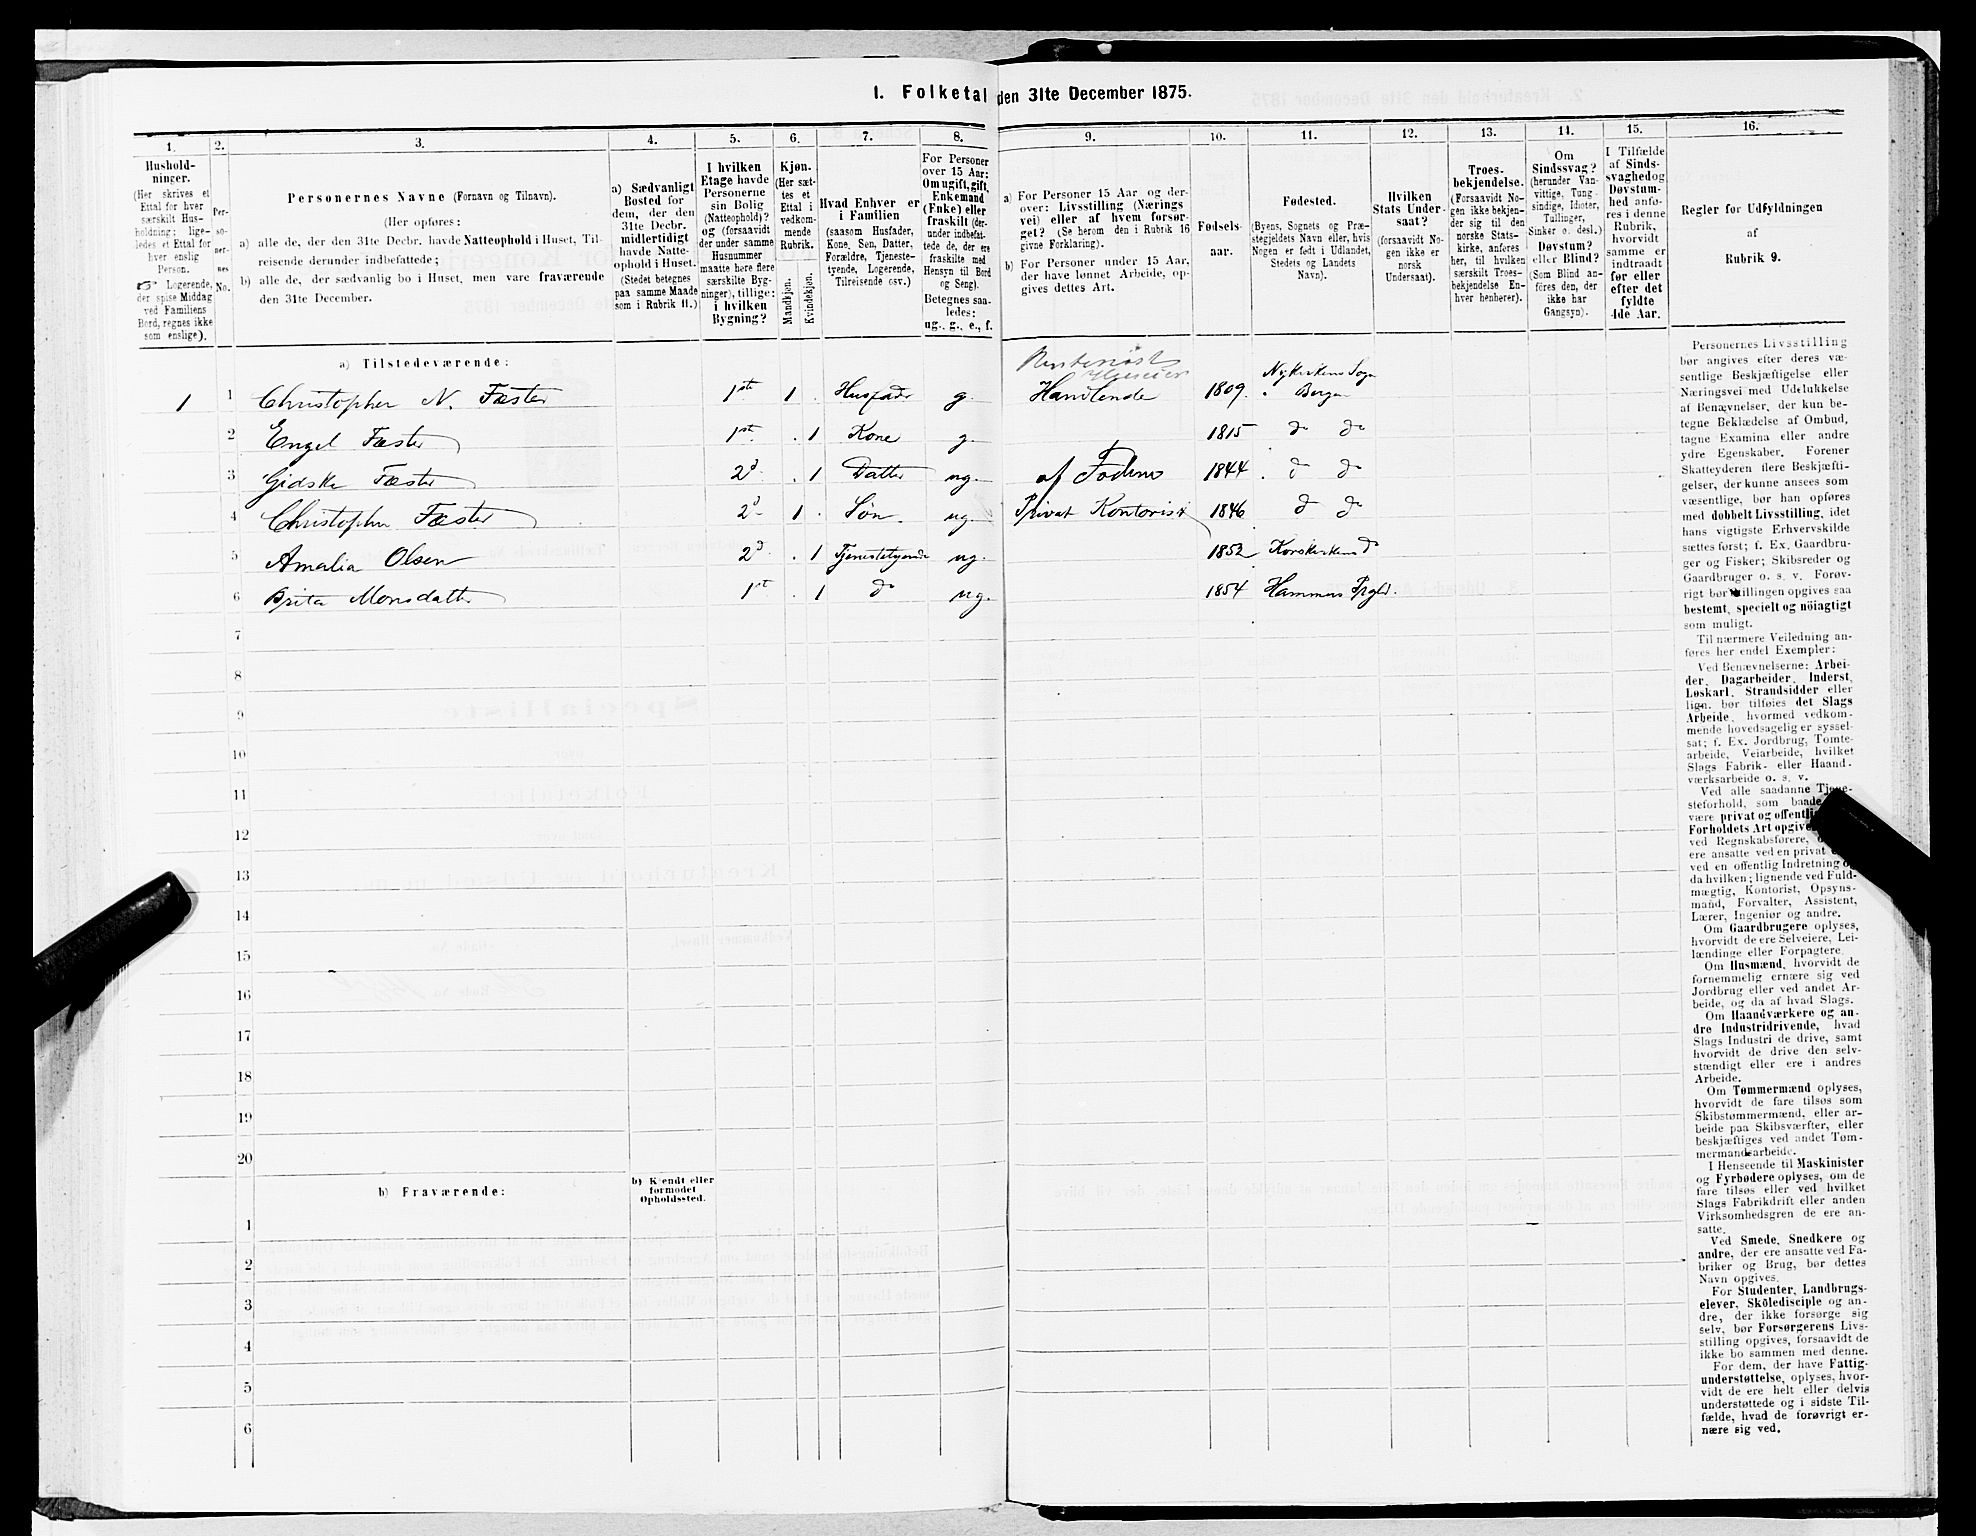 I. Folketal den 31te December 1875.
1. 2. 3. 4. 5. 6. 7. 8. 9. 10. 11. 12. 13. 14. 15. 16.
Hushold-
ninger.
(Her skrives et
Ettal for hver
særskilt Hus-
holdning; lige-
ledes et Ettal for
hver enslig
Person.
☞ Logerende,
der spise Middag
ved Familiens
Bord, regnes ikke
som enslige).
Per-
so-
ner-
nes
No.
Personernes Navne (Fornavn og Tilnavn).
(Her opføres:
a) alle de, der den 31te Decbr. havde Natteophold i Huset, Til-
reisende derunder indbefattede;
b) alle de, der sædvanlig bo i Huset, men vare fraværende
den 31te December.
a) Sædvanligt
Bosted for
dem, der den
31te Decbr.
midlertidigt
havde Natte-
ophold i Huset.
(Stedet betegnes
paa samme Maade
som i Rubrik 11.)
I hvilken
Etage havde
Personerne
sin Bolig
(Natteophold)?
og (forsaavidt
der under samme
Husnummer
maatte høre flere
særskilte Byg-
ninger), tillige:
i hvilken
Bygning?
Kjøn.
(Her sæt-
tes et
Ettal i
vedkom-
mende
Rubrik.
Mandkjøn.
Kvindekjøn.
Hvad Enhver er
i Familien
(saasom Husfader,
Kone, Søn, Datter,
Forældre, Tjeneste-
tyende, Logerende,
Tilreisende osv.)
For Personer
over 15 Aar:
Om ugift, gift,
Enkemand
(Enke) eller
fraskilt (der-
under indbefat-
tede de, der ere
fraskilte med
Hensyn til Bord
og Seng).
Betegnes saa-
ledes:
ug., g., e., f.
a) For Personer 15 Aar og der-
over: Livsstilling (Nærings
vei) eller af hvem forsør-
get? (Se herom den i Rubrik 16
givne Forklaring).
b) For Personer under 15 Aar,
der have lønnet Arbeide, op-
gives dettes Art.
Fødsels-
aar.
Fødested.
(Byens, Sognets og Præ-
stegjeldets Navn eller, hvis
Nogen er født i Udlandet,
Stedets og Landets
Navn).
Hvilken
Stats Under-
saat?
(forsaavidt No-
gen ikke er
norsk
Undersaat).
Troes-
bekjendelse.
(Forsaavidt No-
gen ikke bekjen-
der sig til den
norske Stats-
kirke, anføres
her, til hvilken
særskilt Troes-
bekjendelse En-
hver henhører).
Om
Sindssvag?
(herunder Van-
vittige, Tung-
sindige, Idioter,
Tullinger,
Sinker o. desl.)
Døvstum?
eller Blind?
(Som Blind an-
føres den, der
ikke har
Gangsyn).
I Tilfælde
af Sinds-
svaghed og
Døvstum-
hed anfø-
res i denne
Rubrik,
hvorvidt
samme er
indtraadt
før eller
efter det
fyldte
4de Aar.
Regler for Udfyldningen
af
Rubrik 9.
a) Tilstedeværende:
1 1 Christopher N. Fæster 1ste 1 Husfader g. Handlende 1809. Nykirkens Sogn Bergen
2 Engel Fæster 1st 1 Kone g. 1815 do do
3 Gidske Fæster 2d 1 Datter ug. af Faderen 1844 do do
4 Christopher Fæster 2d 1 Søn. ug. Privat Kontorist 1846 do do
5 Amalia Olsen 2d 1 Tjenestetyende ug. 1852 Korskirkens do
6 Brita Monsdatter 1st 1 do ug. 1854 Hammers Prgld.
7
8
9
10
11
12
13
14
15
16
17
18
19
20
b) Fraværende:
b) Kjendt eller
formodet
Opholdssted.
1
2
3
4
5
6
Personernes Livsstilling
bør angives efter deres væ-
sentlige Beskjæftigelse eller
Næringsvei med Udelukkelse
af Benævnelser, der kun be-
tegne Beklædelse af Ombud,
tagne Examina eller andre
ydre Egenskaber. Forener
Skatteyderen flere Beskjæfti-
gelser, der kunne ansees som
væsentlige, bør han opføres
med dobbelt Livsstilling, idet
hans vigtigste Erhvervskilde
sættes først; f. Ex. Gaardbru-
ger og Fisker; Skibsreder og
Gaardbruger o. s. v. Forøv-
rigt bør Stillingen opgives saa
bestemt, specielt og nöiagtigt
som muligt.
Til nærmere Veiledning an-
føres her endel Exempler:
Ved Benævnelserne: Arbei-
der, Dagarbeider, Inderst,
Løskarl, Strandsidder eller
lign. bør tilføies det Slags
Arbeide, hvormed vedkom-
mende hovedsagelig er syssel-
sat; f. Ex. Jordbrug, Tomte-
arbeide, Veiarbeide, hvilket
Slags Fabrik- eller Haand-
værksarbeide o. s. v.
Ved alle saadanne Tjene-
steforhold, som baade
være privat og offentli
Forholdets Art opgive
ved Regnskabsførere,
ere ansatte ved en privat
ved en offentlig Indretning
da hvilken; lignende ved Fuld-
mægtig, Kontorist, Opsyns-
mand, Forvalter, Assistent,
Lærer, Ingeniør og andre.
Om Gaardbrugere oplyses,
hvorvidt de ere Selveiere, Lei-
lændinge eller Forpagtere.
Om Husmænd, hvorvidt de
fornemmelig ernære sig ved
Jordbrug eller ved andet Ar-
beide, og da af hvad Slags.
Om Haandværkere og an-
dre Industridrivende, hvad
Slags Industri de drive, samt
hvorvidt de drive den selv-
stændigt eller ere i andres
Arbeide.
Om Tømmermænd oplyses,
hvorvidt de fare tilsøs som
Skibstømmermænd, eller ar-
beide paa Skibsværfter, eller
beskjæftiges ved andet Tøm-
mermandsarbeide.
I Henseende til Maskinister
og Fyrbødere oplyses, om de
fare tilsøs eller ved hvilket
Slags Fabrikdrift eller anden
Virksomhedsgren de ere an-
satte.
Ved Smede, Snedkere og
andre, der ere ansatte ved Fa-
briker og Brug, bør dettes
Navn opgives.
For Studenter, Landbrugs-
elever, Skoledisciple og an-
dre, der ikke forsørge sig
selv, bør Forsørgerens Livs-
stilling opgives, forsaavidt de
ikke bo sammen med denne.
For dem, der have Fattig-
understøttelse, oplyses, hvor-
vidt de ere helt eller delvis
understøttede og i sidste Til-
fælde, hvad de forøvrigt er-
nære sig ved.